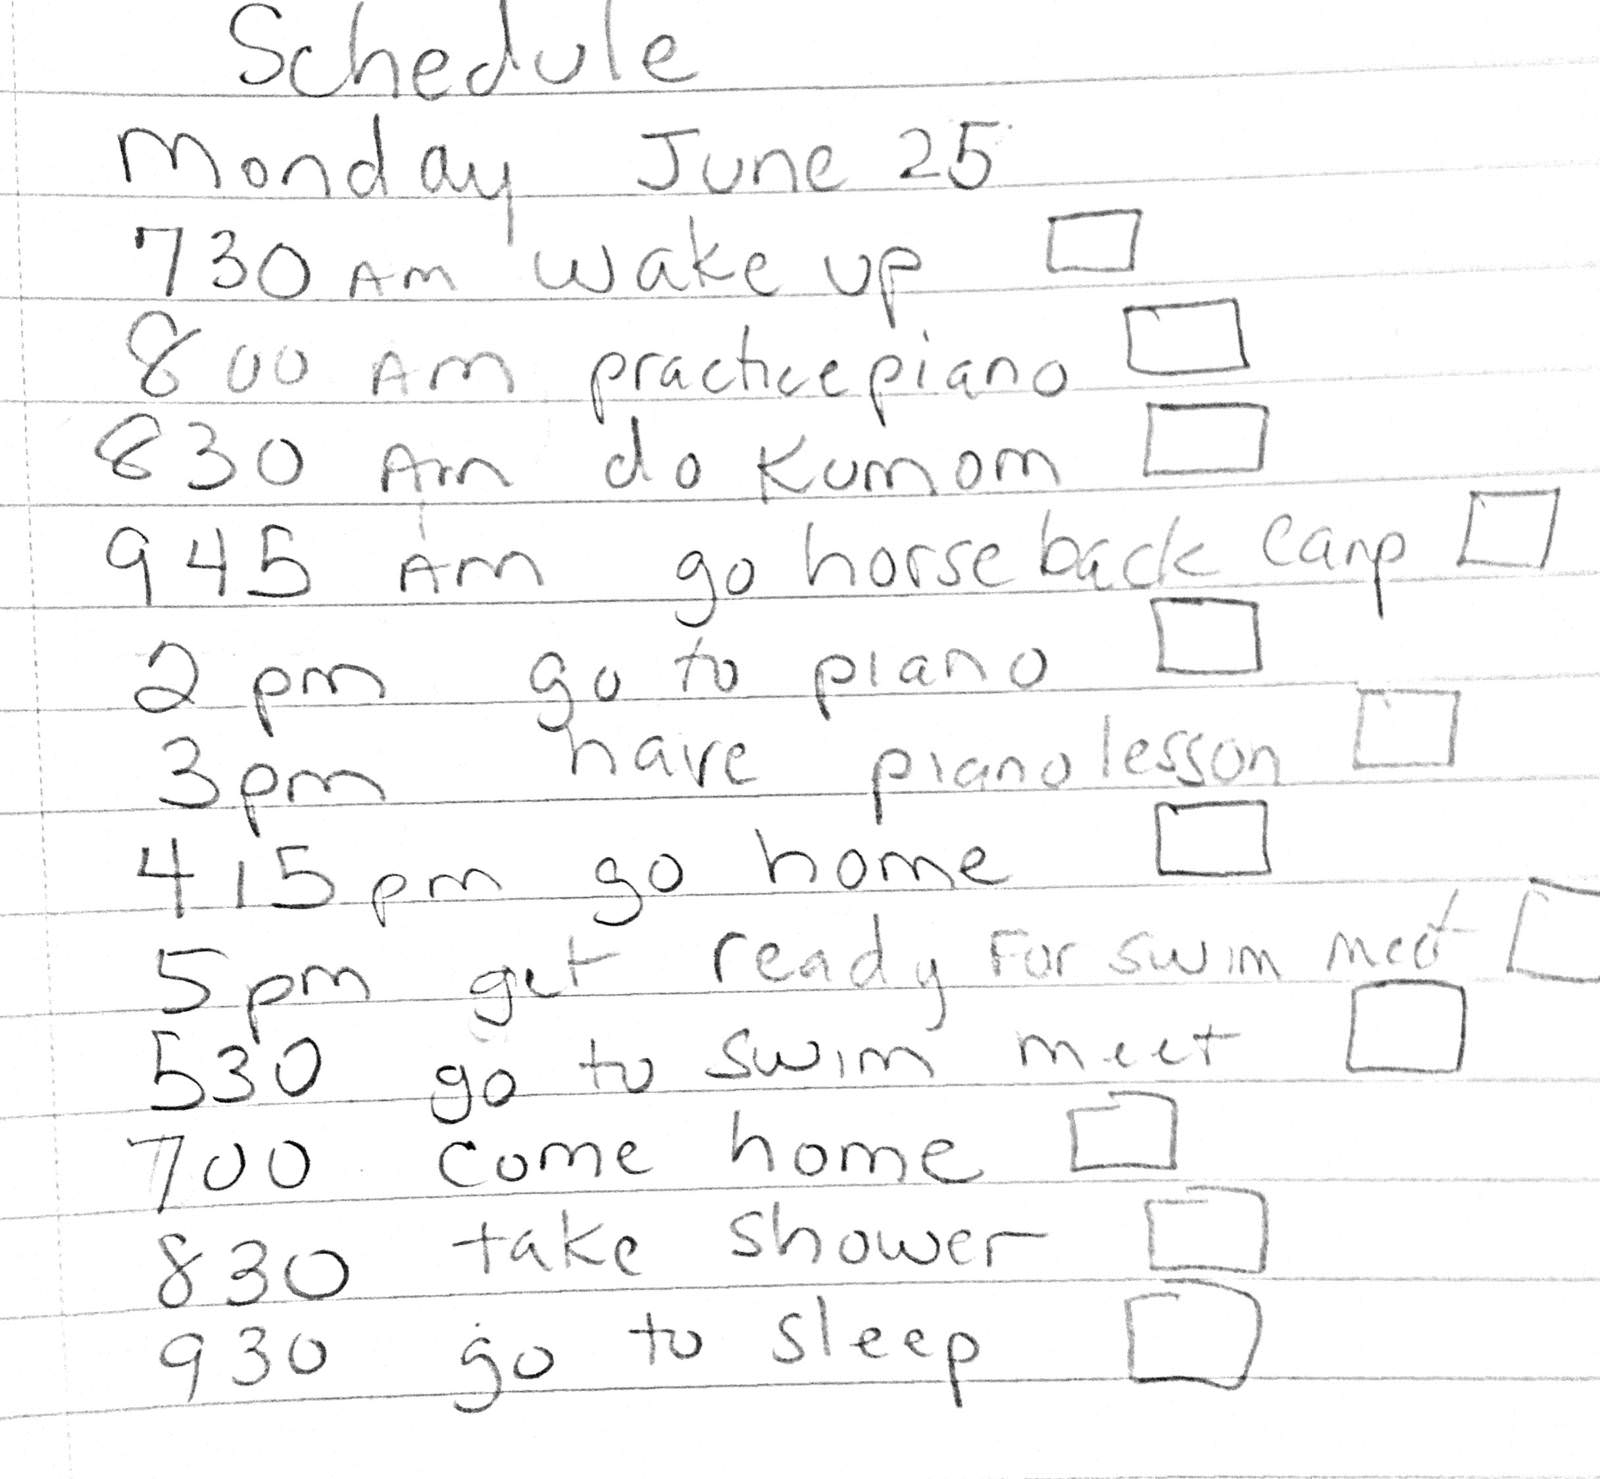 Schedule
Monday June 25
730 AM wake up
800 AM practice piano
830 Am do Kumom
945 Am go horse back camp
2 pm go to piano
3pm have piano lesson
415pm go home
5pm get ready For swim meet
530 go to swim meet
700 come home
830 take shower
930 go to sleep